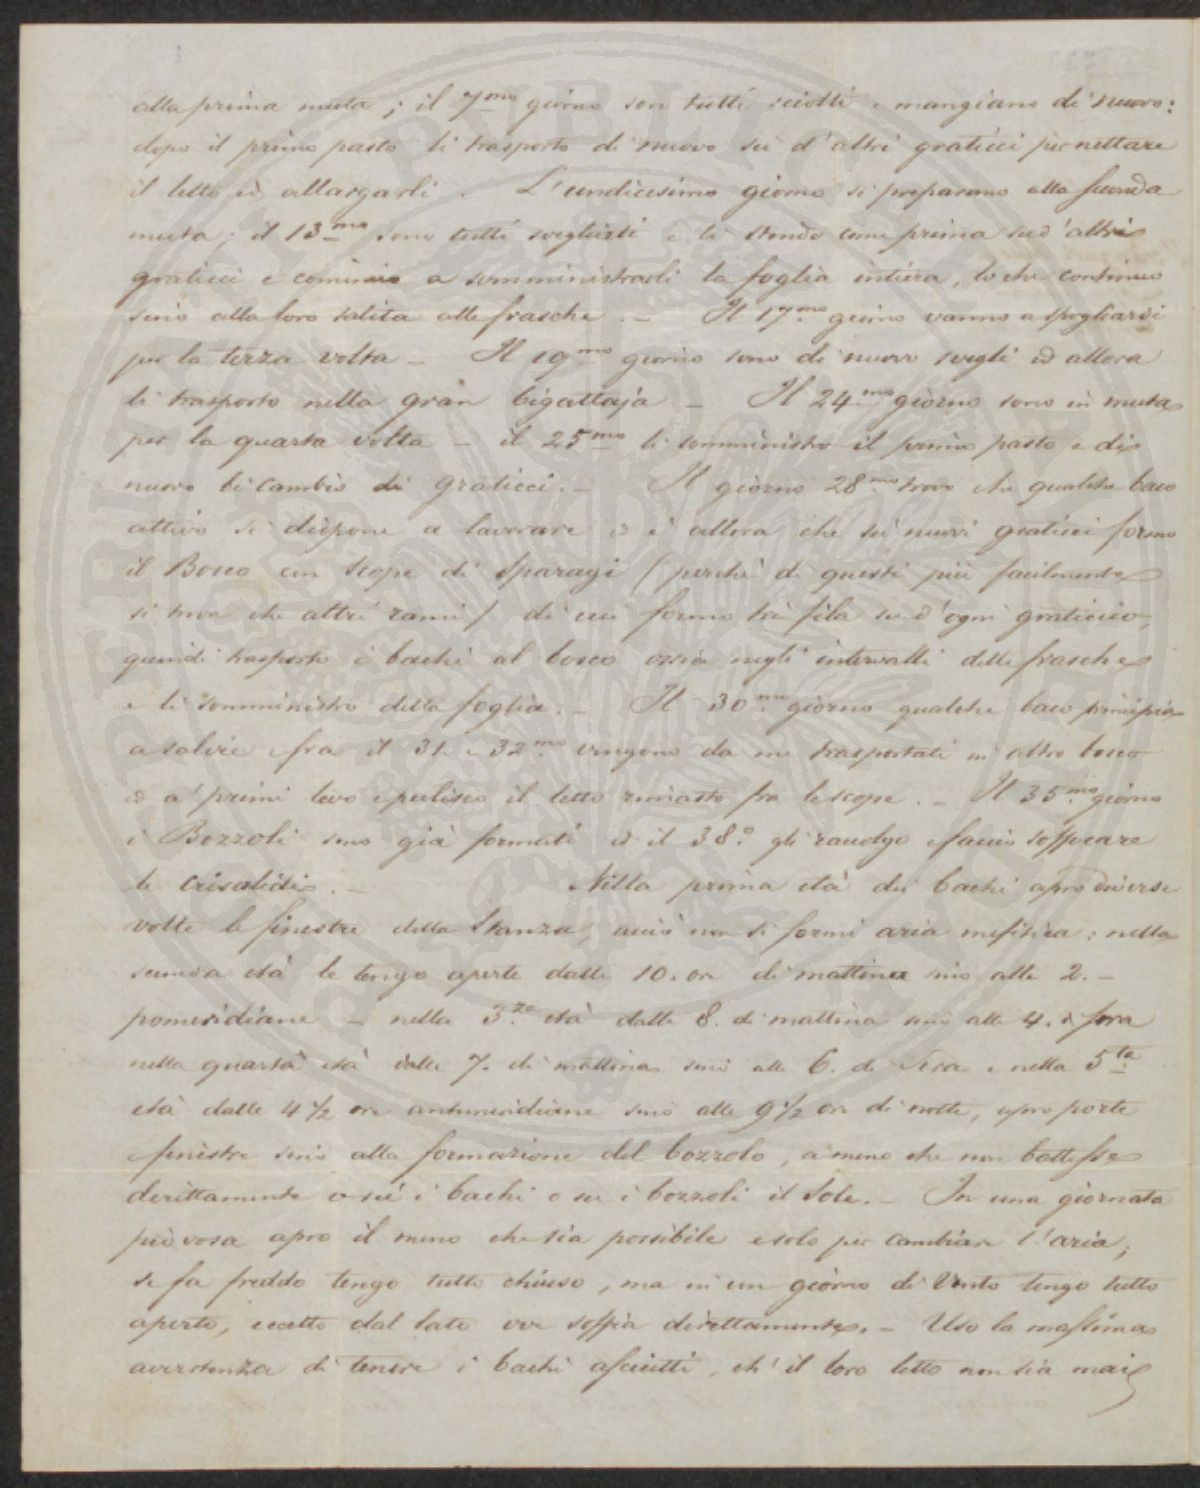 alla prima muta; il 7.mo giorno son tutti sciolti e mangiano di nuovo:
dopo il primo pasto li trasporto di nuovo su d'altri graticci per nettare
il letto ed allargarli. L'undicesimo giorno si preparano alla seconda
muta; il 13.mo sono tutti svegliati e li stendo come prima su d'altri
graticci e comincio a somministrarli la foglia intiera, lo che continuo
sino alla loro salita alle frasche. — Il 17.mo giorno vanno a spogliarsi
per la terza volta — Il 19.mo giorno sono di nuovo svegli ed allora
li trasporto nella gran bigattaja — Il 24.mo giorno sono in muta
per la quarta volta — il 25.mo li somministro il primo pasto e di
nuovo li cambio di graticci. — Il giorno 28.mo trovo che qualche baco
attivo si dispone a lavorare ed è allora che sui nuovi graticci formo
il Bosco con scope di Sparagi (perchè di questi più facilmente
si trova che altri rami) di cui formo trè fila su d'ogni graticcio,
quindi trasporto i bachi al bosco ossia negli intervalli delle frasche
e li somministro della foglia. — Il 30.mo giorno qualche baco principia
a salire e fra il 31. e 32.mo vengono da me trasportati in altro bosco
ed a' primi levo e pulisco il letto rimasto fra le scope. — Il 35.mo giorno
i Bozzoli sono già formati ed il 38.o gli raccolgo e faccio soffocare
le crisalidi. — Nella prima età dei bachi apro diverse
volte le finestre della Stanza, acciò non si formi aria mefitica: nella
seconda età le tengo aperte dalle 10. ore di mattina sino alle 2. —
pomeridiane — nella 3.za età dalle 8. di mattina sino alle 4. di sera
nella quarta età dalle 7. di mattina sino alle 6. di sera e nella 5.ta
età dalle 4 1/2 ore antimeridiane sino alle 9 1/2 ore di notte, apro porte
e finestre sino alla formazione del bozzolo, a meno che non battesse
direttamente o su i bachi o su i bozzoli il Sole. — In una giornata
piovosa apro il meno che sia possibile e solo per cambiare l'aria;
se fa freddo tengo tutto chiuso, ma in un giorno di Vento tengo tutto
aperto, eccetto dal lato ove soffia direttamente. — Uso la massima
avvertenza di tenere i bachi asciutti, ch'il loro letto non sia mai